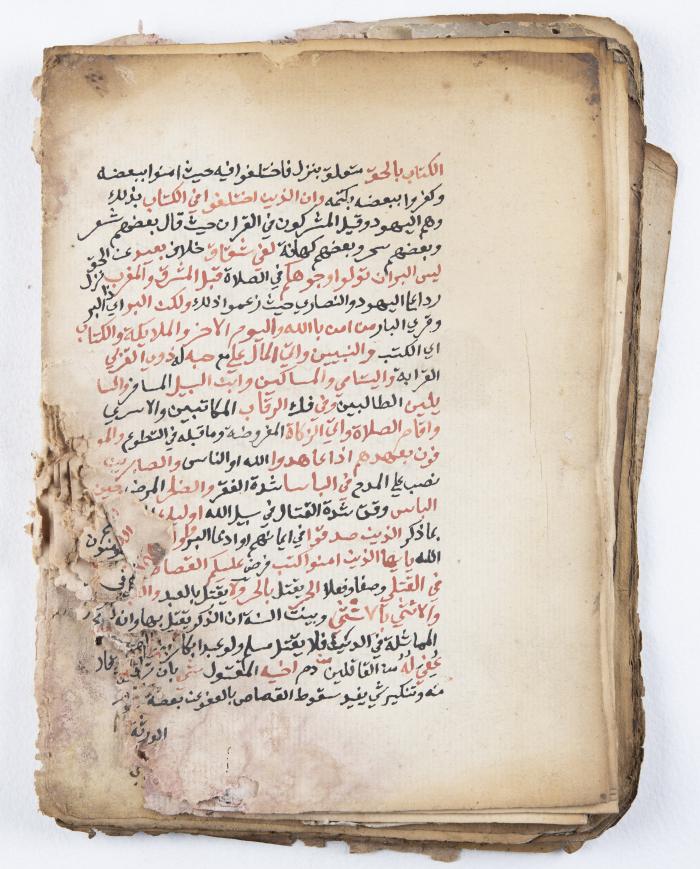 الكتاب بالحق متعلق بنزل فاختلفوا فيه حيث امنوا ببعضه
وكفروا ببعضه بكتمه وان الذين اختلفوا في الكتاب بذلك
وهم اليهود وقيل المشركون في القران حيث قال بعضهم شعر
وبعضهم سحر وبعضهم كهانة لفي شقاق خلاف بعيد عن الحق
ليس البر ان تولوا وجوهكم في الصلاة قبل المشرق والمغرب نزل
ردا على اليهود والنصاري حيث زعموا ذلك ولكن البر اي ذا البر
وقري البار من امن بالله واليوم الاخر والملايكة والكتاب
اي الكتب والنبيين واتي المال علي مع حبه له ذوي القربي
القرابة واليتامي والمساكين وابن السبيل المسافر والسا
يلين الطالبين وفي فك الرقاب المكاتبين والاسري
واقام الصلاة واتي الزكاة المفروضة وما قبله في التطوع والمو
فون بعهدهم اذا عاهدوا الله او الناس والصابرين
نصب علي المدح في الباسا شدة الفقر والضرا المرض وحين
الباس وقت شدة القتال في سبيل الله اوليك
بما ذكر الذين صدقوا في ايمانهم او ادعا البر واوليك هم المتقون
الله يايها الذين امنوا كتب فرض عليكم القصاص
في القتلي وصفا وفعلا الحر يقتل بالحر ولا يقتل بالعبد والعبد
والانثي بالانثي وبينت السنة ان الذكر يقتل بها وانه
المماثلة في الدين فلا يقتل مسلم ولو عبدا بكافر
عفي له من القاتلين من دم اخيه المقتول شي بان ترك
منه وتنكير شي يفيد سقوط القصاص بالعفو عن بعضه
الورثة